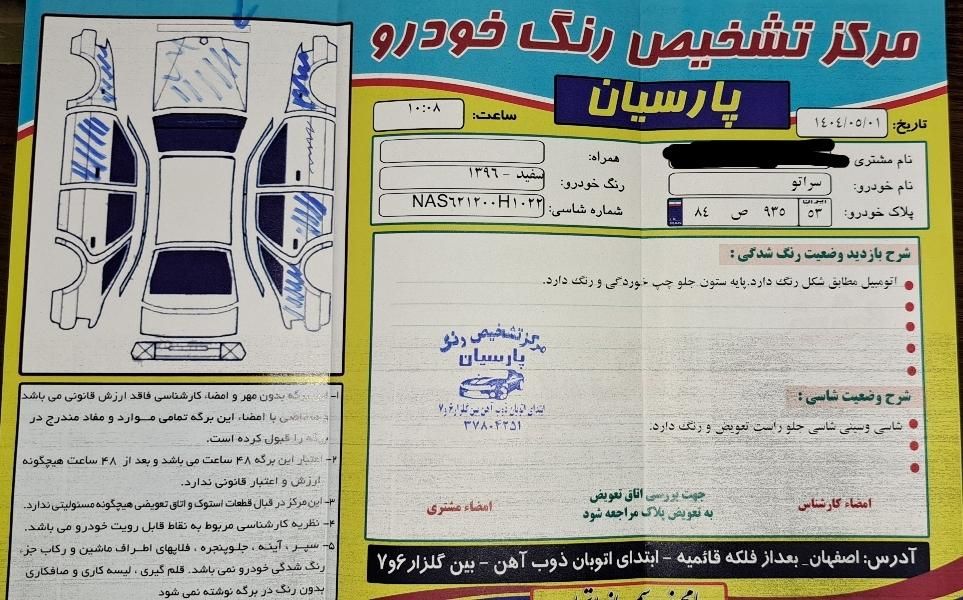 مرکز تشخیص رنگ خودرو
پارسیان
تاریخ: ۱۴۰۴/۰۵/۰۱
ساعت: ۱۰:۰۸
نام مشتری
همراه:
نام خودرو: سراتو
رنگ خودرو: سفید - ۱۳۹۶
پلاک خودرو: ایران ۵۳ ۹۳۵ ص ۸۴
شماره شاسی: NAS۶۲۱۲۰۰H۱۰۲۲
شرح بازدید وضعیت رنگ شدگی:
اتومبیل مطابق شکل رنگ دارد.پایه ستون جلو چپ خوردگی و رنگ دارد.
مرکز تشخیص رنگ
پارسیان
ابتدای اتوبان ذوب آهن بین گلزار ۶و۷
شرح وضعیت شاسی:
شاسی وسینی شاسی جلو راست تعویض و رنگ دارد.
امضاء کارشناس
جهت بررسی اتاق تعویض
به تعویض پلاک مراجعه شود
امضاء مشتری
آدرس: اصفهان_ بعداز فلکه قائمیه - ابتدای اتوبان ذوب آهن - بین گلزار ۶و۷
۱- این برگه بدون مهر و امضاء کارشناسی فاقد ارزش قانونی می باشد
با امضاء این برگه تمامی موارد و مفاد مندرج در
برگه را قبول کرده است.
۲- اعتبار این برگه ۴۸ ساعت می باشد و بعد از ۴۸ ساعت هیچگونه
ارزش و اعتبار قانونی ندارد.
۳- این مرکز در قبال قطعات استوک و اتاق تعویضی هیچگونه مسئولیتی ندارد.
۴- نظریه کارشناسی مربوط به نقاط قابل رویت خودرو می باشد.
۵- سپر ، آینه ، جلوپنجره ، فلاپهای اطراف ماشین و رکاب جزء
رنگ شدگی خودرو نمی باشد. قلم گیری ، لیسه کاری و صافکاری
بدون رنگ در برگه نوشته نمی شود